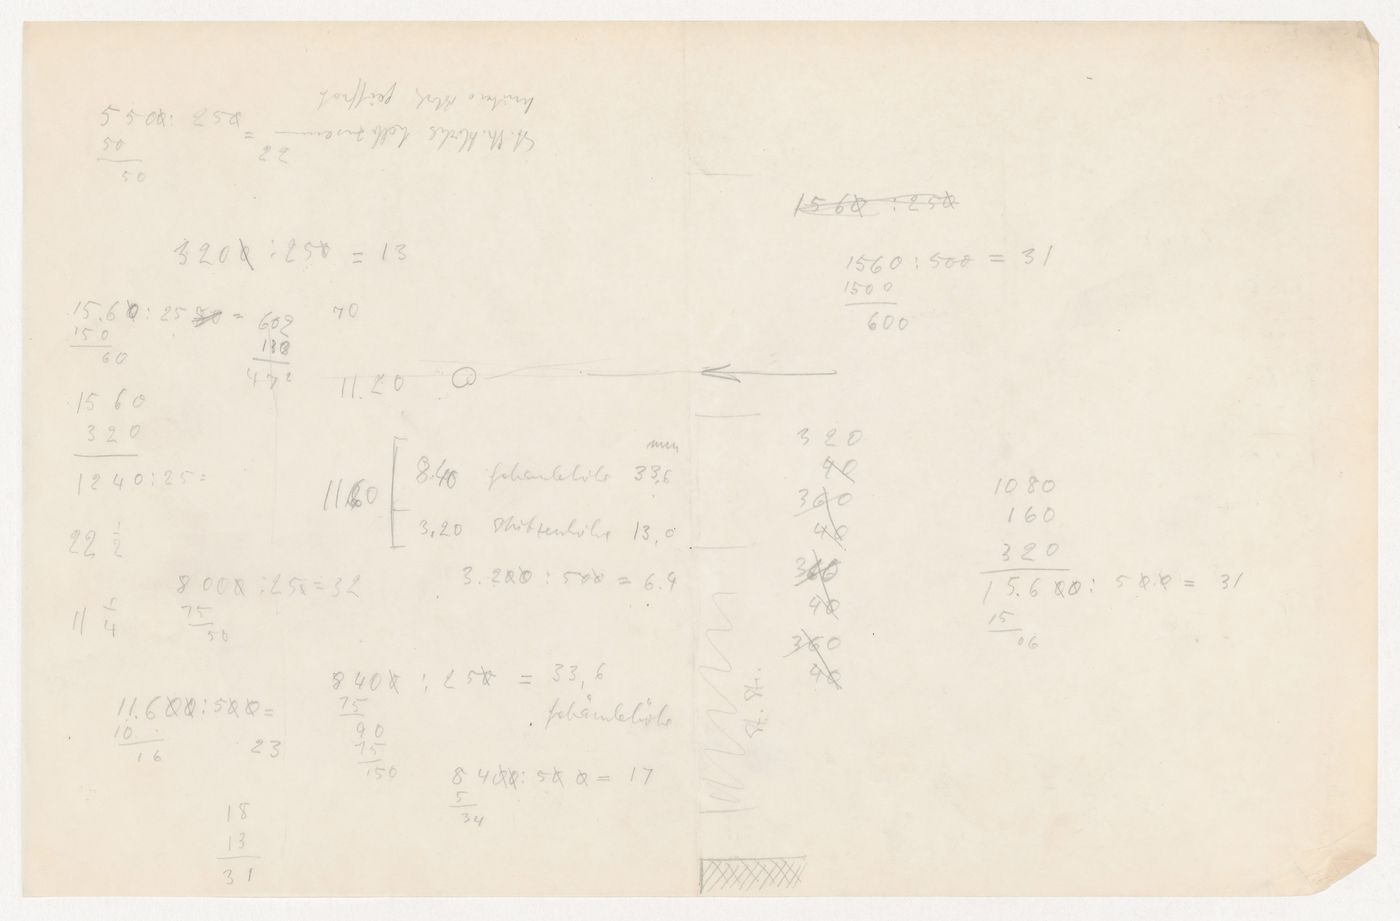 5500 : 250 = 22
50
50
3200 : 250 = 13
15.60 : 25 =
150
60
602
130
472
70
11.20
1560
320
1240 : 25 =
11.60
mm
8.40 33,6
3,20 Stützenhöhe 13,0
22 1/2
8000 : 250 = 32
75
50
3.200 : 500 = 6.4
11 1/4
8400 : 250 = 33,6
75
90
75
150
11.600 : 500 =
10
16
23
8400 : 500 = 17
5
34
18
13
31
1560 : 250
1560 : 500 = 31
1500
600
320
40
360
40
360
40
360
40
St. St.
1080
160
320
15.600 : 500 = 31
15
06